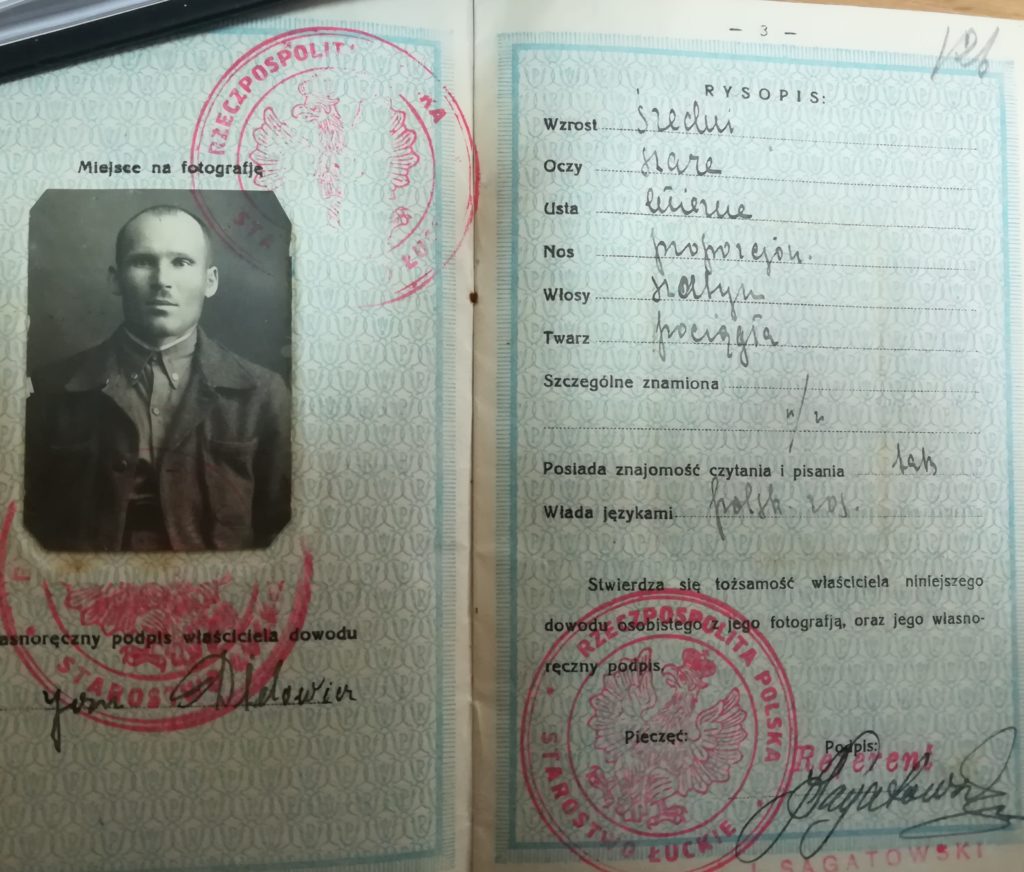 RZECZPOSPOLIT KA
STA ŁUC
Miejsce na fotografję
asnoręczny podpis właściciela dowodu
STAROSTW
- 3 -
126
RYSOPIS:
Wzrost średni
Oczy szare
Usta mierne
Nos proporcjon.
Włosy szatyn
Twarz pociągła
Szczególne znamiona
n/n
Posiada znajomość czytania i pisania tak
Włada językami polsk. ros.
Stwierdza się tożsamość właściciela niniejszego
dowodu osobistego z jego fotografją, oraz jego własno-
ręczny podpis,
RZECZPOSPOLITA POLSKA
STAROSTWO ŁUCKIE
Pieczęć:
Podpis:
Referent
SAGATOWSKI